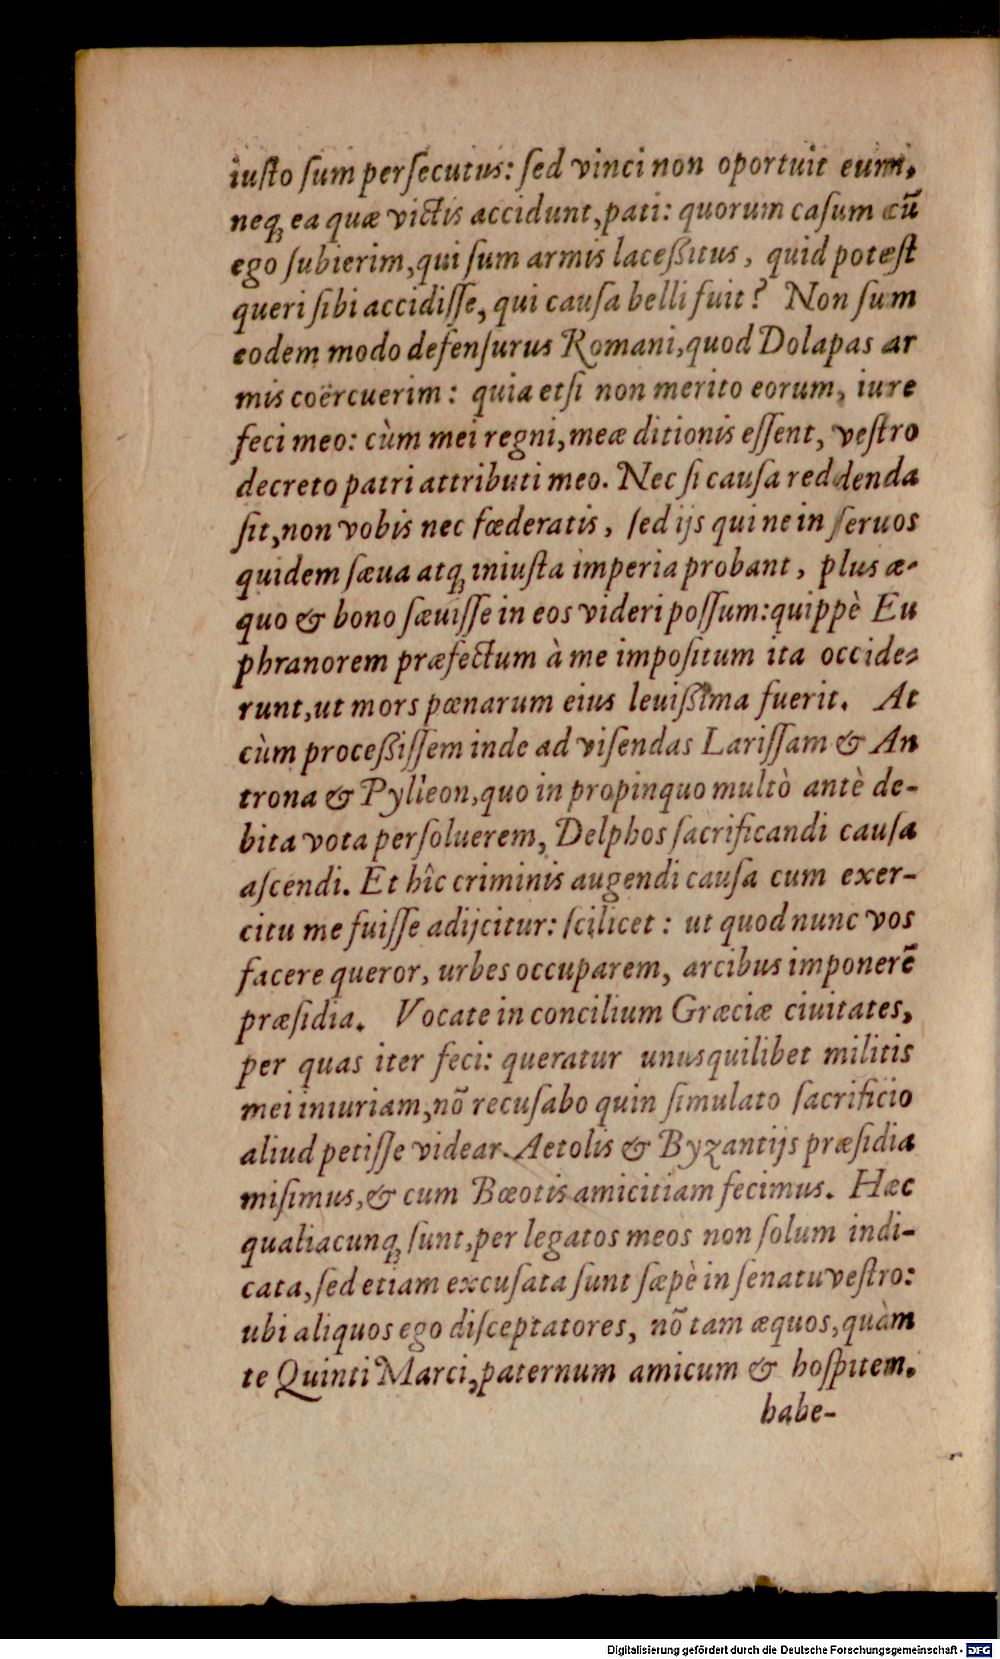 iusto sum persecutus: sed vinci non oportuit eum,
neq; ea quæ victis accidunt, pati: quorum casum cũ
ego subierim, qui sum armis laceßitus, quid potest
queri sibi accidisse, qui causa belli fuit? Non sum
eodem modo defensurus Romani, quod Dolapas ar
mis coërcuerim: quia etsi non merito eorum, iure
feci meo: cùm mei regni, meæ ditionis essent, vestro
decreto patri attributi meo. Nec si causa reddenda
sit, non vobis nec fœderatis, sed ijs qui ne in seruos
quidem sæua atq; iniusta imperia probant, plus æ-
quo & bono sæuisse in eos videri possum: quippè Eu
phranorem præfectum à me impositum ita occide-
runt, ut mors pœnarum eius leuißima fuerit. At
cùm proceßissem inde ad visendas Larissam & An
trona & Pylleon, quo in propinquo multò antè de-
bita vota persoluerem, Delphos sacrificandi causa
ascendi. Et hîc criminis augendi causa cum exer-
citu me fuisse adijcitur: scilicet: ut quod nunc vos
facere queror, urbes occuparem, arcibus imponerẽ
præsidia. Vocate in concilium Græciæ ciuitates,
per quas iter feci: queratur unusquilibet militis
mei iniuriam, nõ recusabo quin simulato sacrificio
aliud petisse videar. Aetolis & Byzantijs præsidia
misimus, & cum Bœotis amicitiam fecimus. Hæc
qualiacunq; sunt, per legatos meos non solum indi-
cata, sed etiam excusata sunt sæpè in senatu vestro:
ubi aliquos ego disceptatores, nõ tam æquos, quàm
te Quinti Marci, paternum amicum & hospitem.
habe-
Digitalisierung gefördert durch die Deutsche Forschungsgemeinschaft - DFG